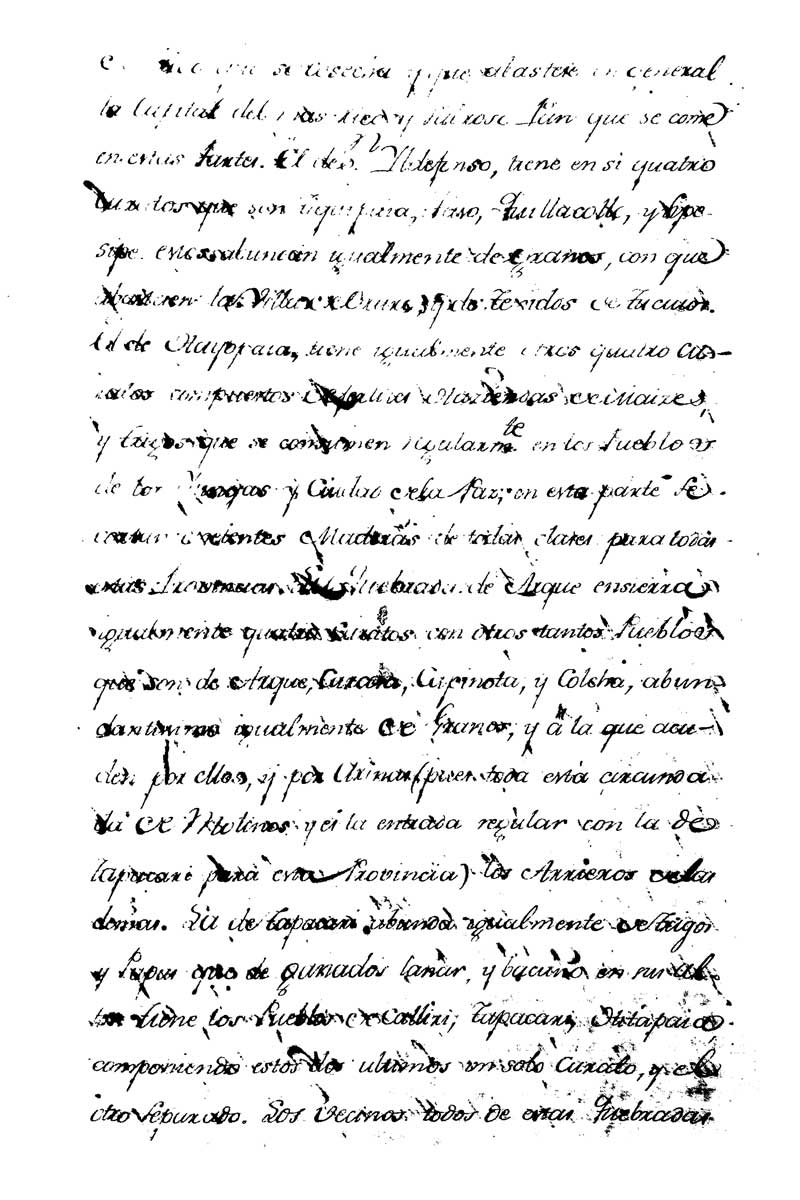 que se cosecha y que abastese en general
la Capital del mas rico y sabroso Pan que se come
en estas Partes. El de Sn. Yldefonso, tiene en si quatro
Curatos que son Tiquipaia, Paso, Quillacollo, y Sipe
sipe. estos abundan igualmente de Granos, con que
abastesen la Villa de Oruro, y de Texidos de Tucuios.
El de Clayopaia, tiene igualmente otros quatro Cu-
ratos compuertos de Haziendas de Maizes,
y trigos que se consumen regularmte en los Pueblos
de los Yungas y Ciudad de la Paz; en esta parte se
cortan exelentes Maderas de todas clases para todas
estas Provincias. La Quebrada de Arque ensierra
igualmente quatro Curatos con otros tantos Pueblos
que son de Arque, Caraza, Capinota, y Colcha, abun
dantisimo igualmente de Granos, y â la que acu-
den por ellos, y por Arinas (pues toda está circunda
da de Molinos y es la entrada regular con la de
Tapacarí para esta Provincia) los Arrieros de las
demas. La de Tapacari abunda igualmente de trigos
y Papas que de ganados lanar, y bacuno en sus al-
tos tiene los Pueblos de Calliri, Tapacari,
componiendo estos dos ultimos un solo Curato, y el
otro separado. Los Vecinos todos de estas Quebradas